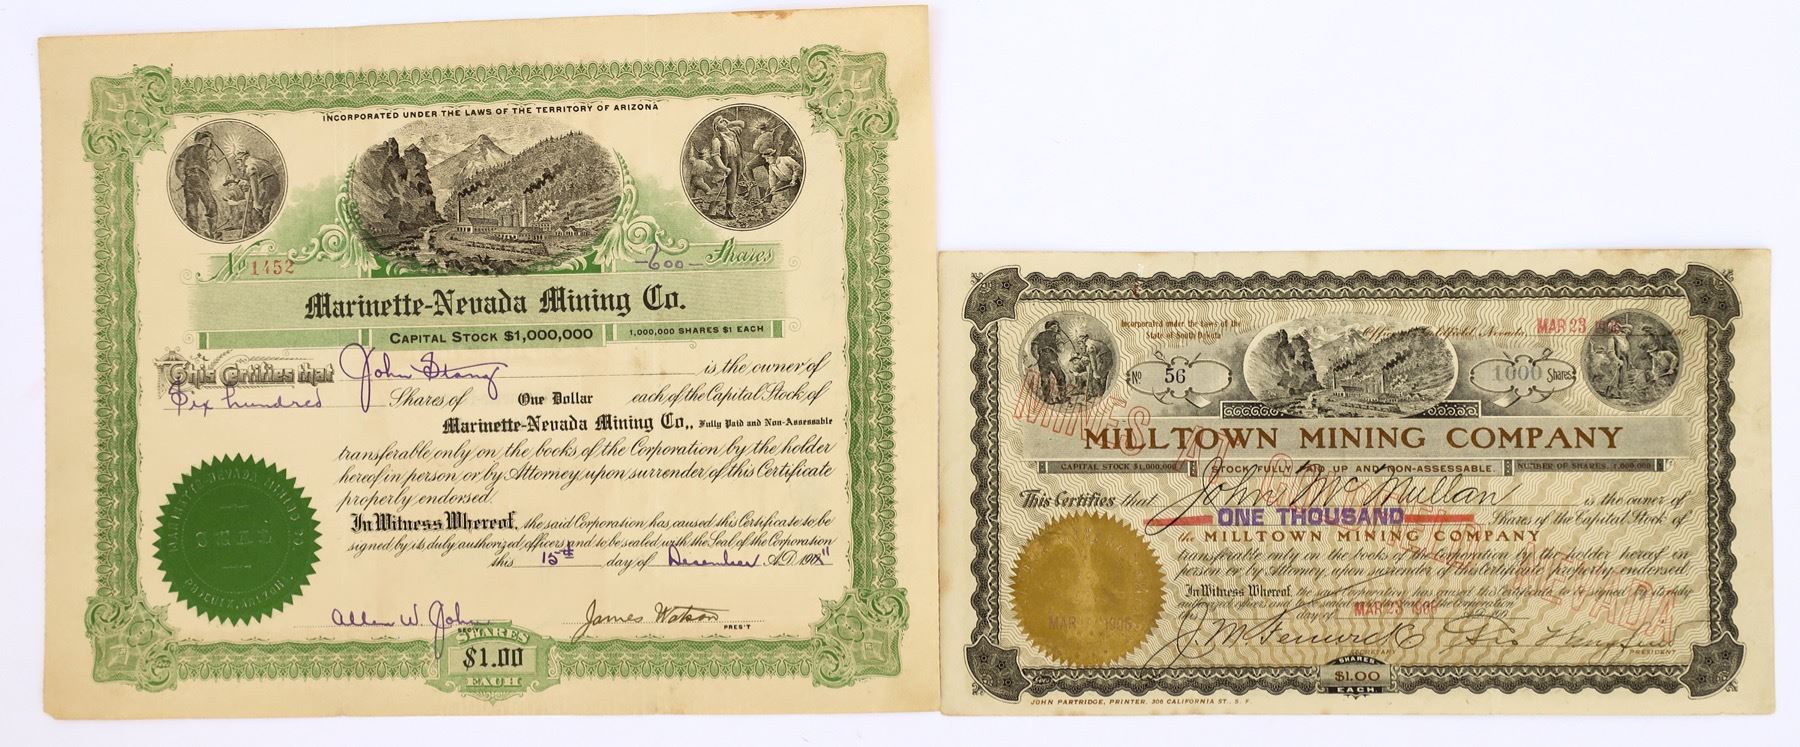 INCORPORATED UNDER THE LAWS OF THE TERRITORY OF ARIZONA
No 1452
600 Shares
Marinette-Nevada Mining Co.
CAPITAL STOCK $1,000,000
1,000,000 SHARES $1 EACH
This Certifies that John Stang is the owner of
Six hundred Shares of One Dollar each of the Capital Stock of
Marinette-Nevada Mining Co., Fully Paid and Non-Assessable
transferable only on the books of the Corporation by the holder
hereof in person or by Attorney upon surrender of this Certificate
properly endorsed.
In Witness Whereof, the said Corporation has caused this Certificate to be
signed by its duly authorized officers and to be sealed with the Seal of the Corporation
this 15th day of December A.D. 190
MARINETTE NEVADA MINING CO
SEAL
Allen W. John
James Watson
PRES'T
SHARES
$1.00
EACH
Incorporated under the laws of the
State of South Dakota
Nevada, MAR 23 190
No 56
1000 Shares
MINES AT NEVADA
MILLTOWN MINING COMPANY
CAPITAL STOCK $1,000,000
STOCK FULLY PAID UP AND NON-ASSESSABLE.
NUMBER OF SHARES, 1,000,000
This Certifies that John McMullan is the owner of
ONE THOUSAND Shares of the Capital Stock of
the MILLTOWN MINING COMPANY
transferable only on the books of the Corporation by the holder hereof in
person or by Attorney upon surrender of this Certificate properly endorsed.
In Witness Whereof, the said Corporation has caused this Certificate to be signed by its duly
authorized officers and to be sealed with the Seal of the Corporation
this MAR 23 1906 day of A.D. 190
MAR 1906
J. M. Fenwick
SECRETARY
PRESIDENT
SHARES
$1.00
EACH
JOHN PARTRIDGE, PRINTER, 306 CALIFORNIA ST., S. F.